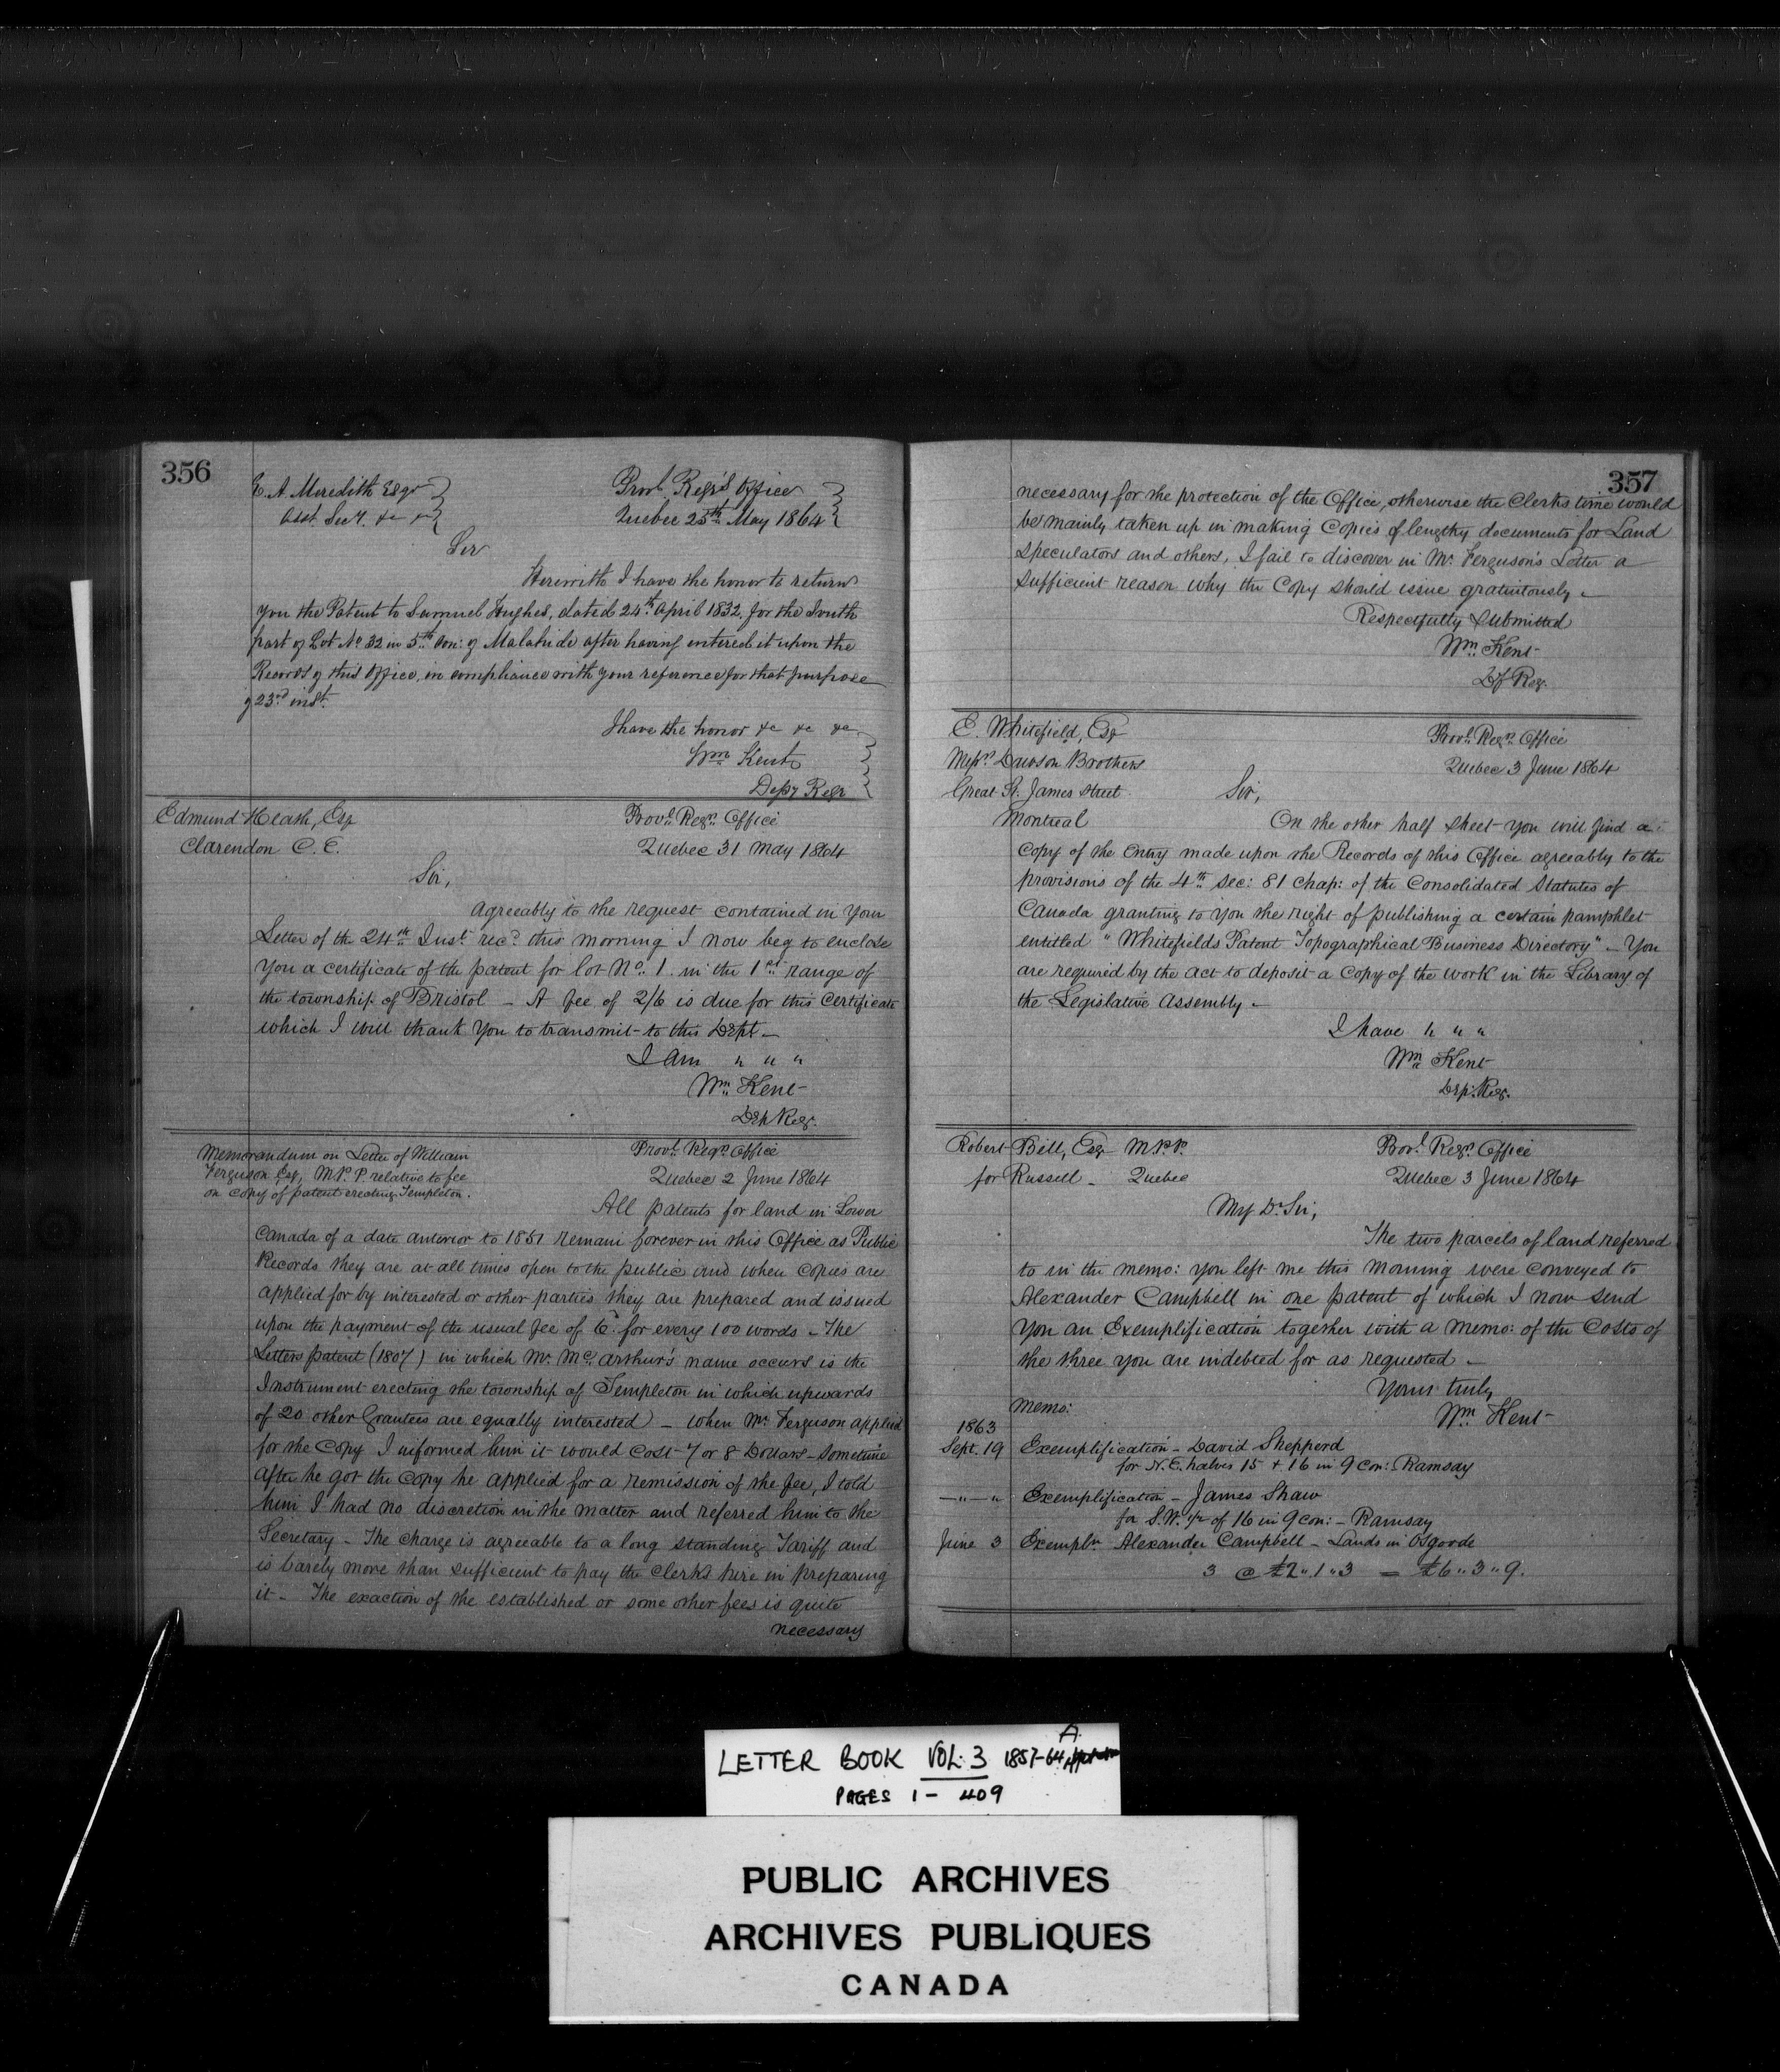 356
E. A. Meredith Esqr
Asst. Secy. &c &c
Provl. Regr's Office
Quebec 25th May 1864
Sir
Herewith I have the honor to return
you the Patent to Samuel Hughes, dated 24th April 1832, for the South
part of Lot No. 32 in 5th Con: of Malahide after having entered it upon the
Records of this Office, in compliance with your reference for that purpose
of 23rd inst.
I have the honor &c &c &c
Wm Kent
Depy Regr
Edmund Heath, Esq
Clarendon C. E.
Provl. Regrs. Office
Quebec 31 May 1864
Sir,
Agreeably to the request contained in Your
Letter of the 24th Inst. recd. this morning I now beg to enclose
You a certificate of the patent for lot No. 1 in the 1st range of
the township of Bristol – A fee of 2/6 is due for this Certificate
which I will thank You to transmit to this Dept –
I am " " "
Wm. Kent
Dep Reg.
Memorandum on Letter of William
Ferguson Esq, M.P.P. relative to fee
on copy of patent erecting Templeton.
Provl. Regrs. Office
Quebec 2 June 1864
All patents for land in Lower
Canada of a date anterior to 1851 remain forever in this Office as Public
Records they are at all times open to the public and when copies are
applied for by interested or other parties they are prepared and issued
upon the payment of the usual fee of 6d. for every 100 words – The
Letters patent (1807) in which Mr. McArthur's name occurs is the
Instrument erecting the township of Templeton in which upwards
of 20 other Grantees are equally interested – when Mr. Ferguson applied
for the Copy I informed him it would cost 7 or 8 Dollars – sometime
after he got the Copy he applied for a remission of the fee, I told
him I had no discretion in the matter and referred him to the
Secretary – The charge is agreeable to a long standing Tariff and
is barely more than sufficient to pay the Clerks hire in preparing
it – The exaction of the established or some other fees is quite
necessary
357
necessary for the protection of the Office, otherwise the Clerks time would
be mainly taken up in making Copies of lengthy documents for Land
Speculators and others, I fail to discover in Mr. Ferguson's Letter a
sufficient reason why the Copy should issue gratuitously –
Respectfully Submitted
Wm. Kent
Dy Reg.
E. Whitefield, Esq
Messrs. Dawson Brothers
Great St. James Street
Montreal
Provl. Regrs. Office
Quebec 3 June 1864
Sir,
On the other half sheet you will find a
Copy of the Entry made upon the Records of this Office agreeably to the
provisions of the 4th Sec: 81 Chap: of the Consolidated Statutes of
Canada granting to You the right of publishing a certain pamphlet
entitled "Whitefields Patent Topographical Business Directory" – You
are required by the act to deposit a Copy of the work in the Library of
the Legislative Assembly –
I have " " "
Wm Kent
Dep. Reg.
Robert Bell, Esq M.P.P.
for Russell – Quebec
Provl. Regrs. Office
Quebec 3 June 1864
My Dr. Sir,
The two parcels of land referred
to in the memo: you left me this morning were conveyed to
Alexander Campbell in one patent of which I now send
You an Exemplification together with a memo: of the Costs of
the three you are indebted for as requested –
Yours truly
Wm. Kent
Memo:
1863
Sept. 19 Exemplification – David Shepperd
for N.E. halves 15 + 16 in 9 con: Ramsay
– " – " Exemplification – James Shaw
for S.W. 1/2 of 16 in 9 con: – Ramsay
June 3 Exempln. Alexander Campbell – Lands in Osgoode
3 @ £2 " 1 " 3 = £6 " 3 " 9.
LETTER BOOK VOL. 3 1857-64 A
PAGES 1 – 409
PUBLIC ARCHIVES
ARCHIVES PUBLIQUES
CANADA